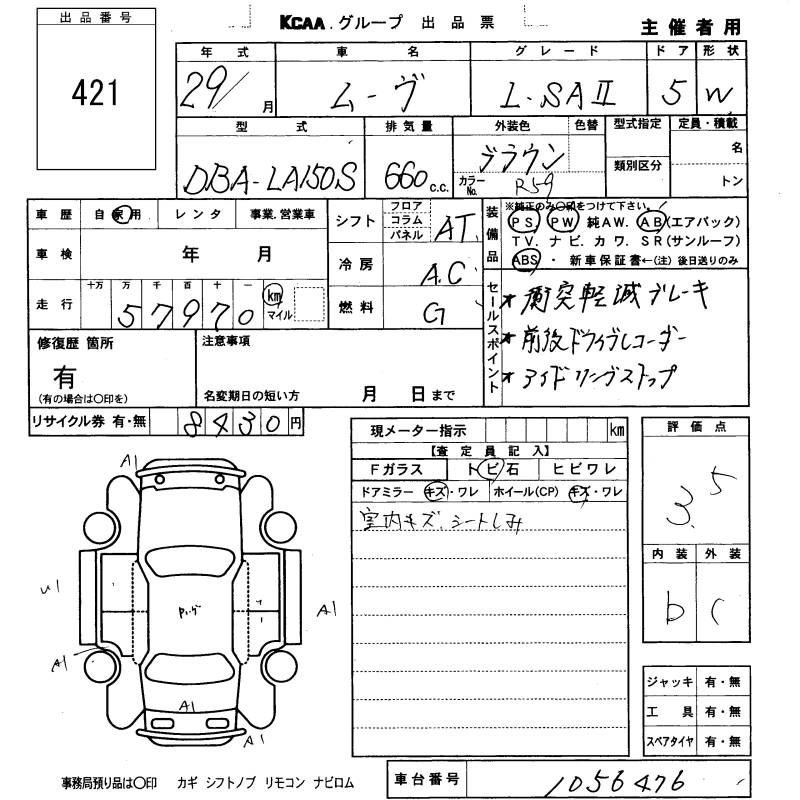 出品番号
421
KCAA.グループ 出品票
主催者用
年式 車名 グレード ドア 形状
29/ 月 ムーヴ L.SAⅡ 5 W
型式 排気量 外装色 色替 型式指定 定員・積載
DBA-LA150S 660 c.c. ブラウン 名
カラーNo. R59 類別区分 トン
車歴 自家用 レンタ 事業.営業車
車検 年 月
走行 十万 万 千 百 十 一
57970 km マイル
シフト フロア コラム パネル AT
冷房 A.C
燃料 G
装備品
※純正のみ○印をつけて下さい。
PS. PW 純AW. AB(エアバック)
TV. ナビ. カワ. SR(サンルーフ)
ABS ・ 新車保証書←(注) 後日送りのみ
セールスポイント
★ 衝突軽減ブレーキ
★ 前後ドライブレコーダー
★ アイドリングストップ
修復歴 箇所
有
(有の場合は○印を)
注意事項
名変期日の短い方 月 日まで
リサイクル券 有・無 8430円
現メーター指示 km
【査定員記入】
Fガラス トビ石 ヒビワレ
ドアミラー キズ・ワレ ホイール(CP) キズ・ワレ
室内キズ、シートしみ
評価点
3.5
内装 外装
b C
A1
U1
A1
A1
A1
A1
ジャッキ 有・無
工具 有・無
スペアタイヤ 有・無
事務局預り品は○印 カギ シフトノブ リモコン ナビロム
車台番号 1056476